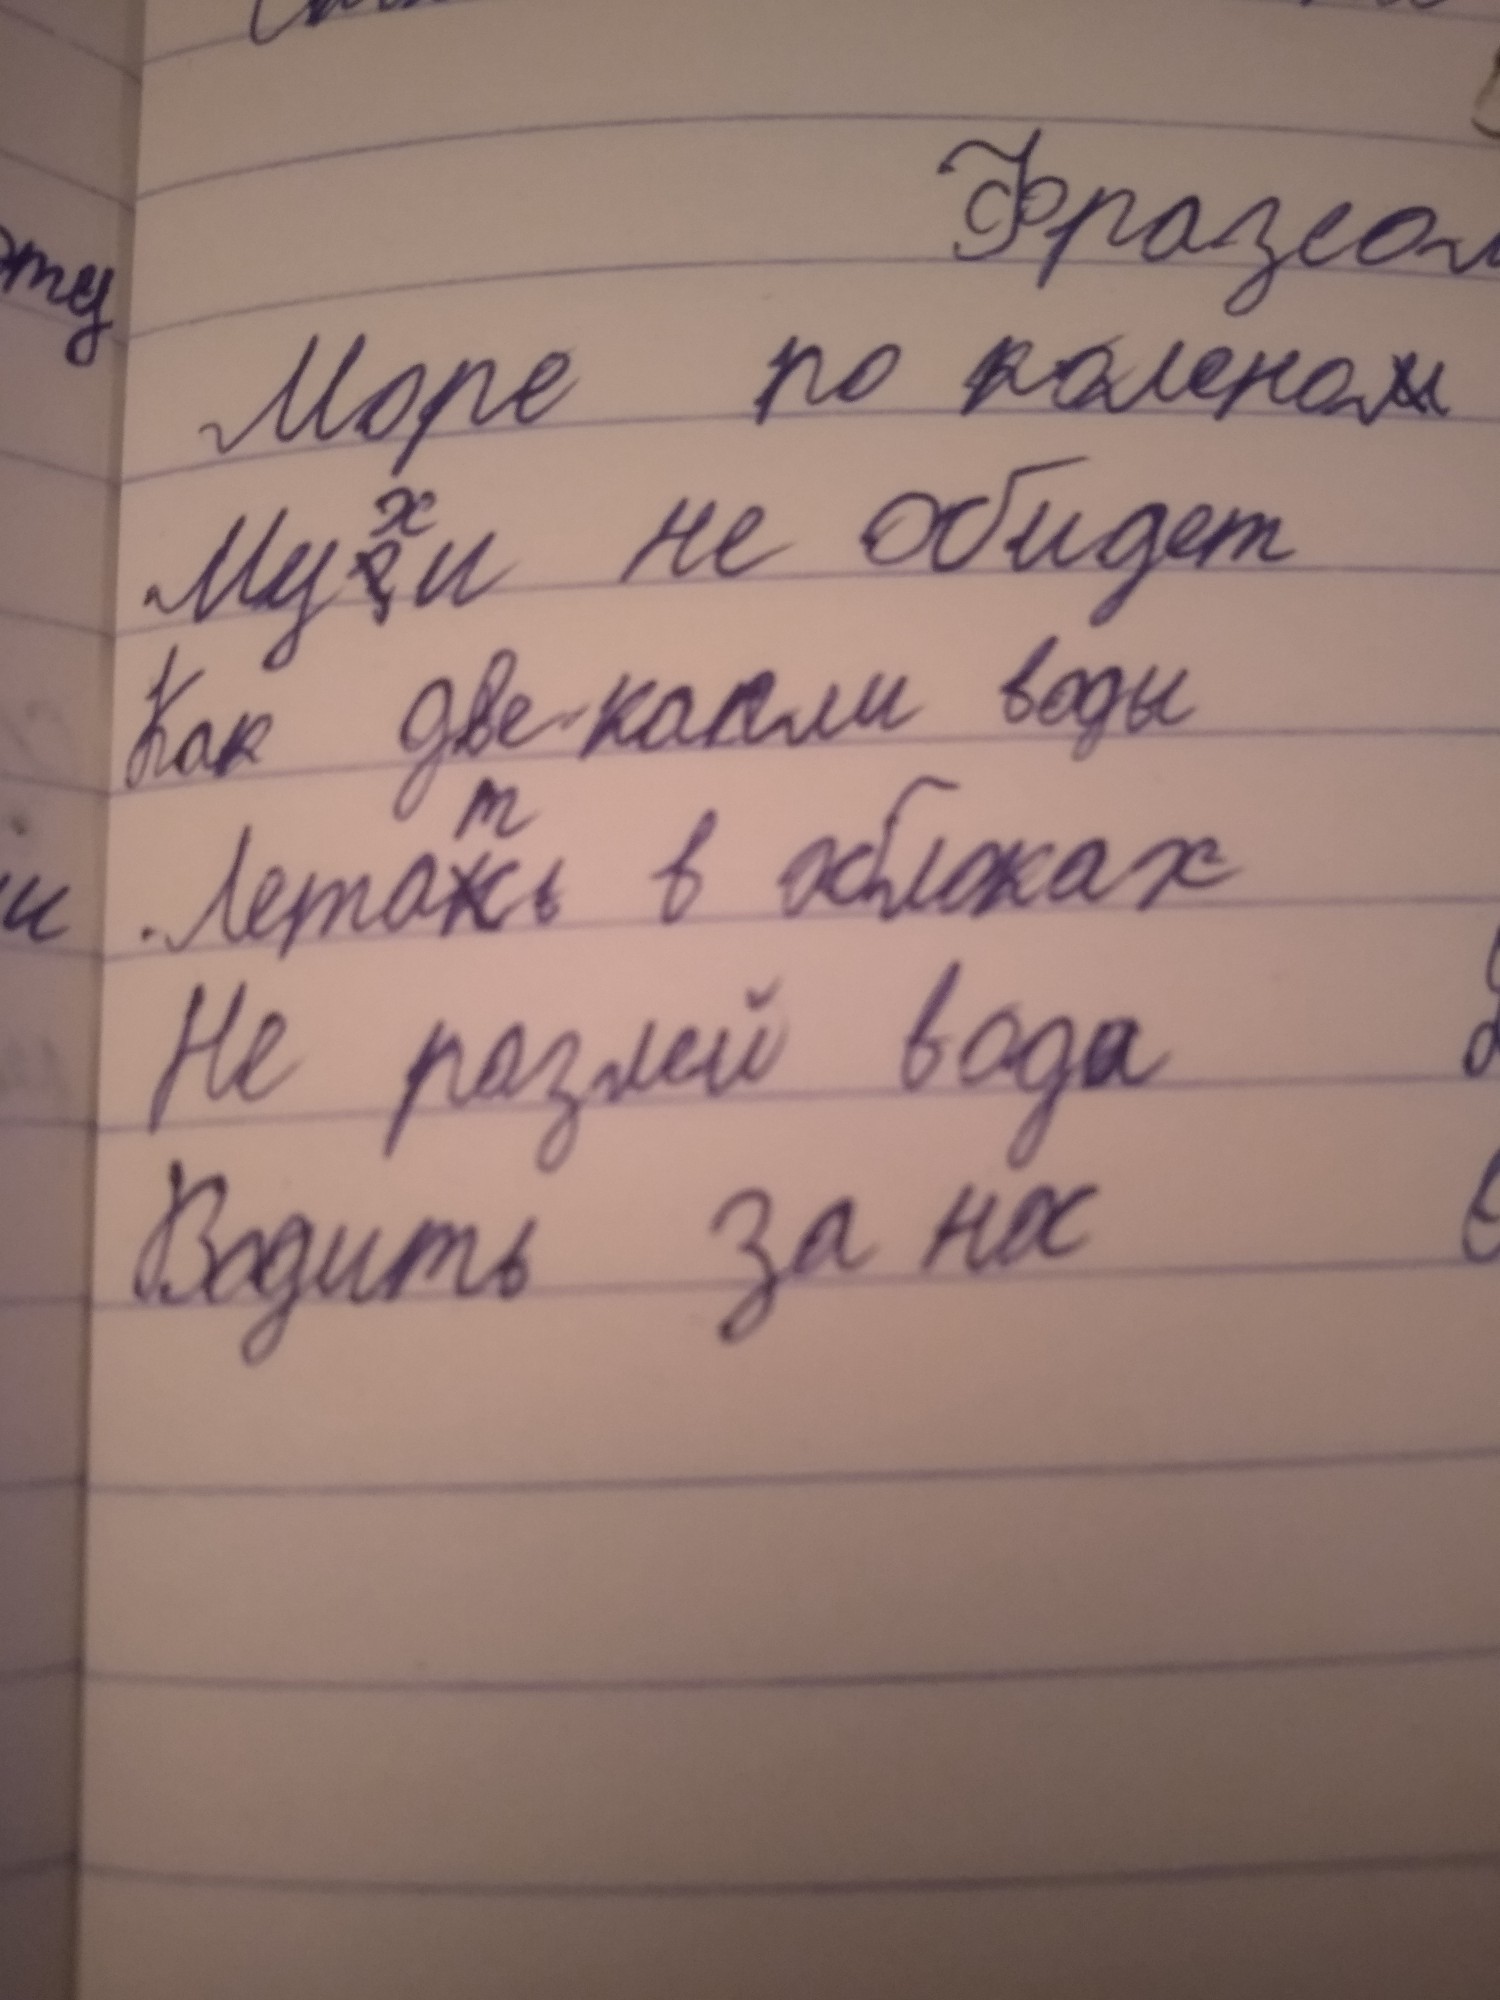 Фразеол
Море по коленом
Мухи не обидет
Как две-капли воды
Летать в облоках
Не разлей вода
Водить за нос